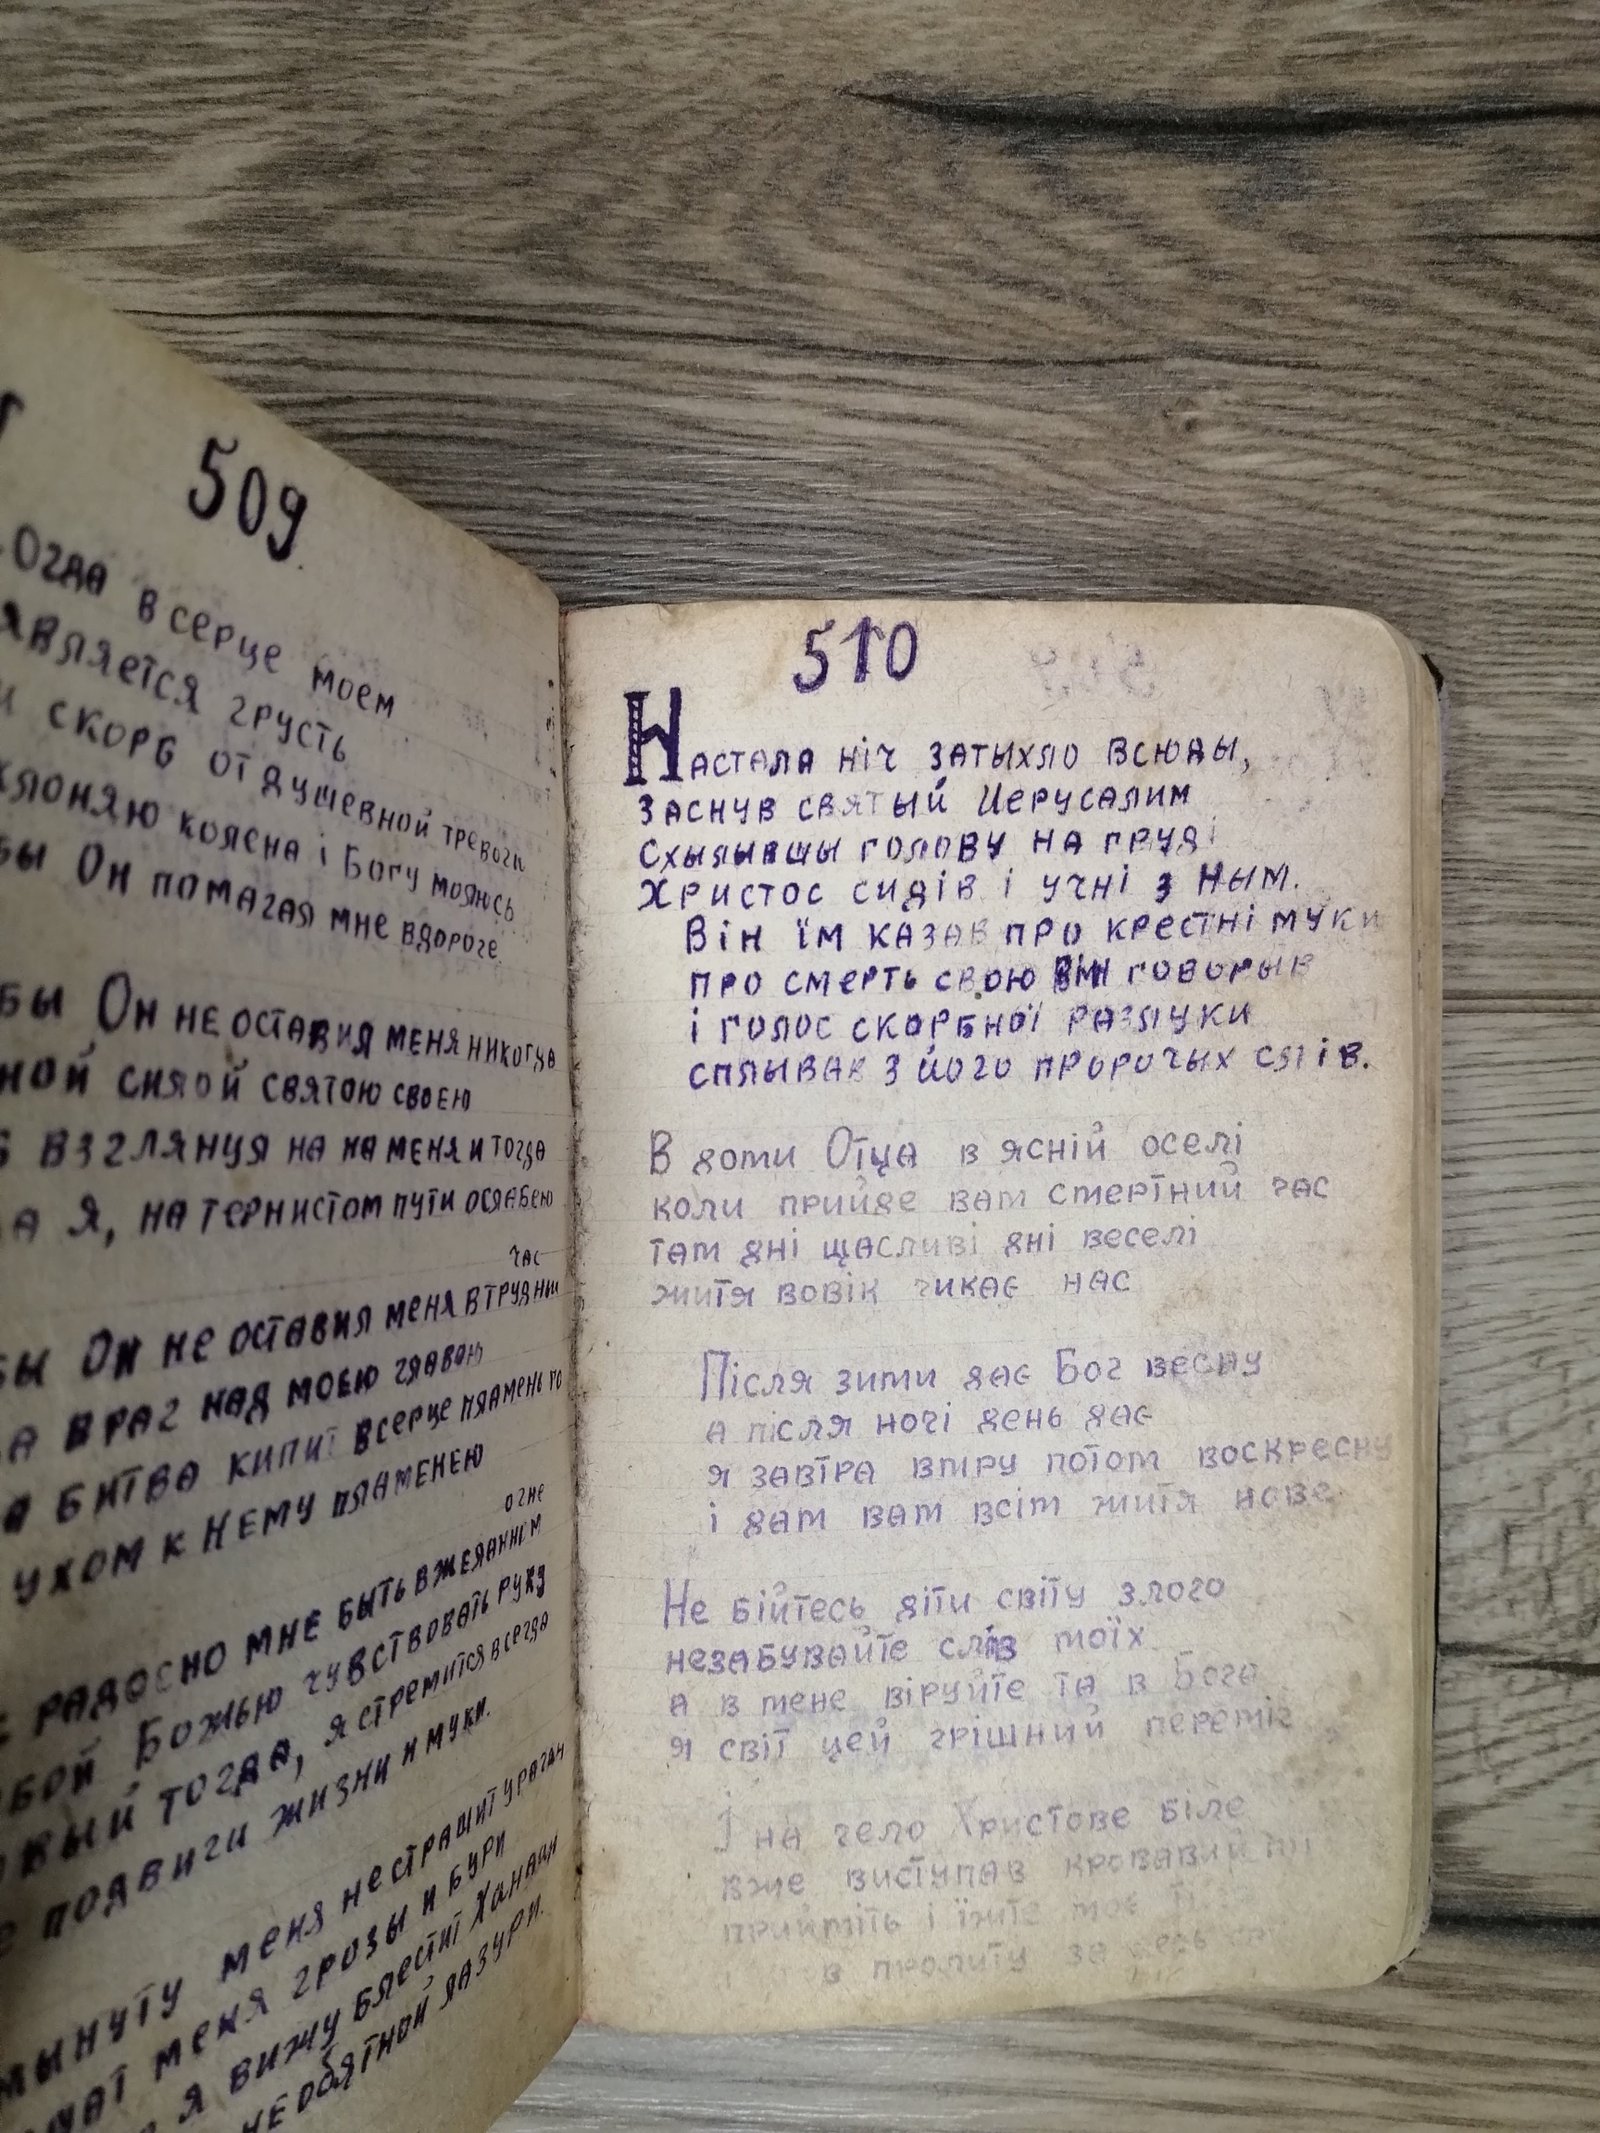 509
огда в серце моем
является грусть
скорб от душевной тревоги
клоняю колена і Богу молюсь
бы Он помагая мне вдороге.
бы Он не оставил меня никогда
ной силой святою своею
взглянця на на меня и тогда
а я, на тернистом пути ослабею
час
бы Он не оставил меня втрудныи
а враг над моею главою
я битва кипит всерце пламень по
ухом к Нему пламенею
огне
радосно мне быть вжеланном
бой Божью чувствовать руку
овый тогда, я стремится всегда
подвиги жизни и муки.
мынуту меня нестрашит ураган
чат меня грозы и бури
я вижу блестит Ханаан
необятной лазури.
510
Настала ніч затыхло всюды,
заснув святый Иерусалим
Схылывшы голову на груді
Христос сидів і учні з Ным.
Він їм казав про крестні муки
про смерть свою Він говорыв
і голос скорбної разлуки
сплывав з його пророчых слів.
В доми Отца в ясній оселі
коли прийде вам смертний час
там дні щасливі дні веселі
житя вовік чикає нас
Після зими дає Бог весну
а після ночі день дає
я завтра вмру потом воскресну
і дам вам всім житя нове
Не бійтесь діти світу злого
незабувайте слів моїх
а в мене віруйте та в Бога
я світ цей грішний переміг
І на чело Христове біле
вже виступав кровавий піт
прийміть і їжте моє
в пролиту за весь